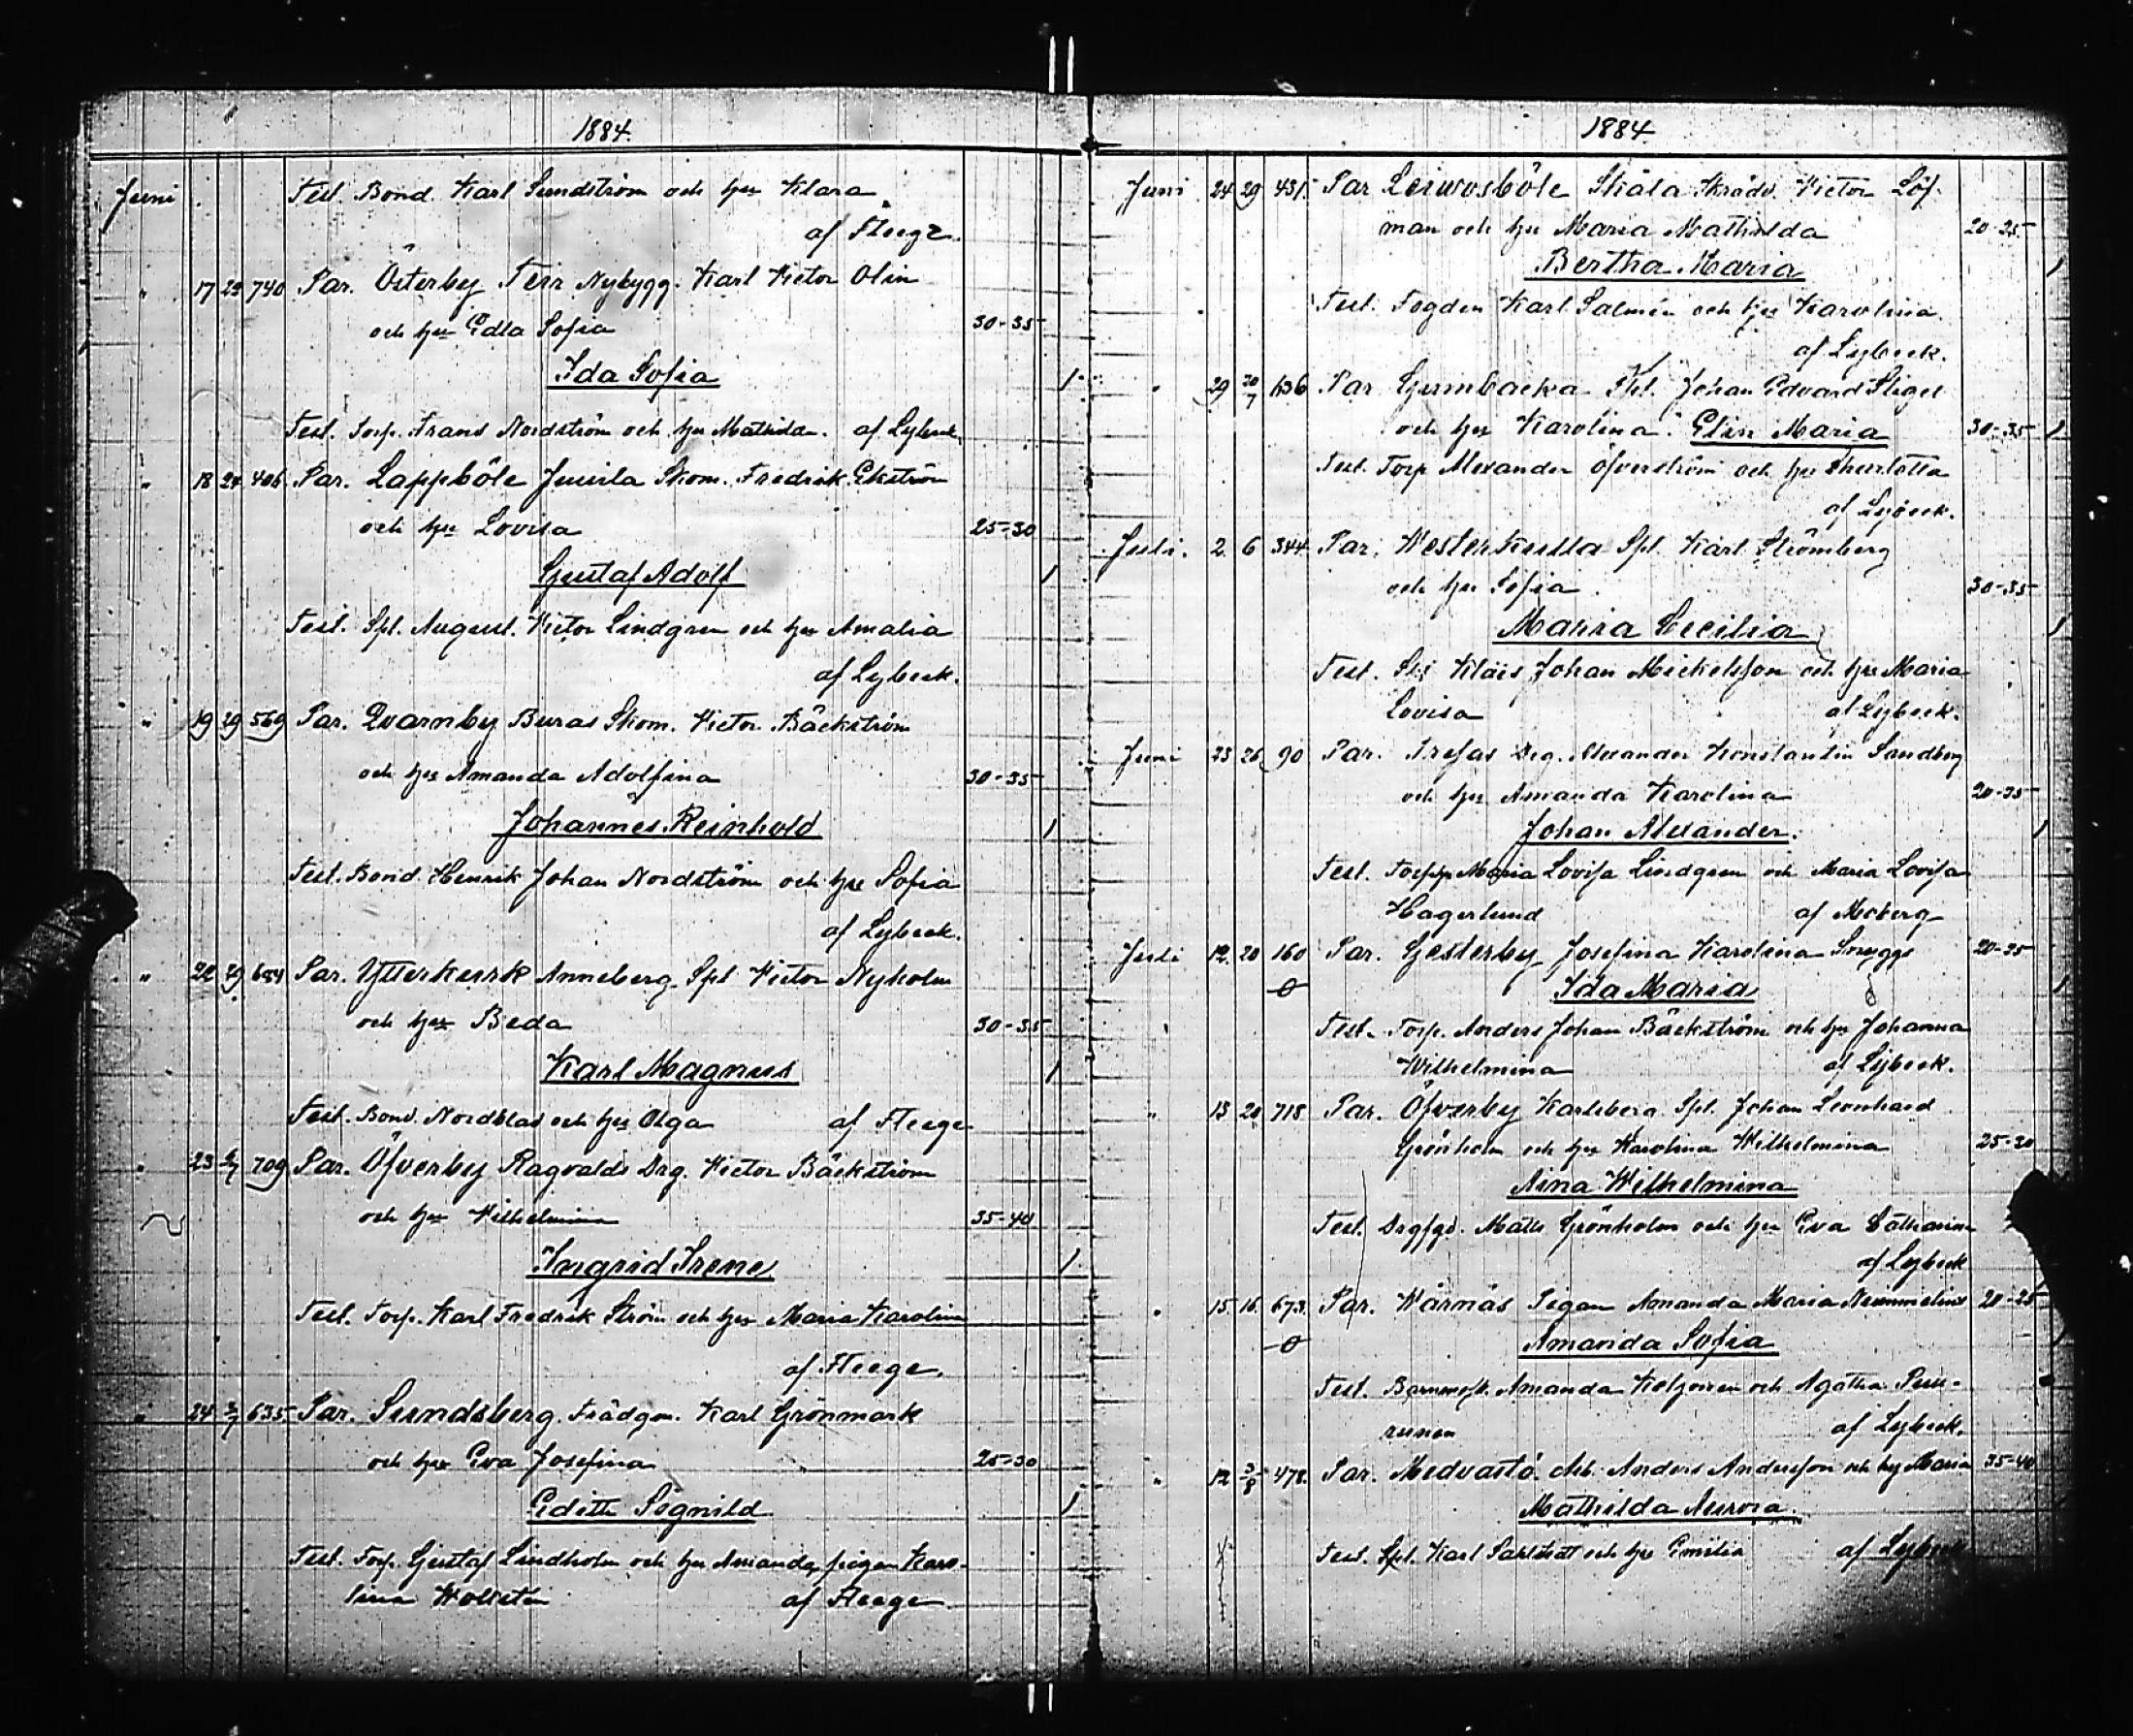 1884.
Juni Test. Bond. Karl Sundström och hu Klara
af Fleege.
" 17 29 740 Par. Österby Teir Nybygg. Karl Victor Olin
och hu Edla Sofia 30-35
Ida Sofia 1
Test. Torp. Frans Nordström och hu Mathilda. af Lybeck.
" 18 24 406 Par. Lappböle Jussila Skom. Fredrik Ekström
och hu Lovisa 25-30
Gustaf Adolf 1
Test. Spl. August Victor Lindgren och hu Amalia
af Lybeck.
" 19 29 569 Par. Qvarnby Buras Skom. Victor Bäckström
och hu Amanda Adolfina 30-35
Johannes Reinhold 1
Test. Bond. Henrik Johan Nordström och hu Sofia
af Lybeck.
" 22 29 684 Par. Ytterkurk Anneberg Spl Victor Nyholm
och hu Beda 30-35
Karl Magnus 1
Test. Bond. Nordblad och hu Olga af Fleege
" 23 6/7 709 Par. Öfverby Ragvalds Drg. Victor Bäckström
och hu Wilhelmina 35-40
Ingrid Irene 1
Test. Torp. Karl Fredrik Ström och hu Maria Karolina
af Fleege.
" 24 635 Par. Sundsberg Trädgm. Karl Grönmark
och hu Eva Josefina 25-30
Edith Signild 1
Test. Torp. Gustaf Lindholm och hu Amanda, pigan Karo-
lina Wollstén af Fleege
1884
Juni 24 29 431. Par Leivosböle Skäla Skrädd. Victor Löf-
man och hu Maria Mathilda 20-25
Bertha Maria 1
Test. Fogden Karl Salmén och hu Karolina
af Lybeck.
" 29 20/7 636 Par Gumbacka Johan Edvard Stigel
och hu Karolina. Elin Maria 30-35 1
Test. Torp Alexander Öfverström och hu Charlotta
af Lybeck.
Juli. 2 6 344. Par. Westerkulla Spl. Karl Strömberg
och hu Sofia 30-35
Maria Cecilia 1
Test. Klais Johan Mickelsson och hu Maria
Lovisa af Lybeck.
Juni 23 26 90 Par. Drg. Alexander Konstantin Sandberg
och hu Amanda Karolina 20-25
Johan Alexander. 1
Test. Maria Lovisa Lindgren och Maria Lovisa
Hagerlund af Moberg
Juli 12. 20 160 Par. Gesterby Josefina Karolina Snygg 20-25
Ida Maria 1
Test. Torp. Anders Johan Bäckström och hu Johanna
Wilhelmina af Lybeck.
" 13 20 718 Par. Öfverby Karlsberg Spl. Johan Leonhard
Grönholm och hu Karolina Wilhelmina 25-30
Aina Wilhelmina
Test. Matts Grönholm och hu Eva Catharina
af Lybeck
" 15. 16. 673. Par. Wårnäs Pigan Amanda Maria 20-25
Amanda Sofia
Test. Barnmsk. Amanda och Agatha
af Lybeck.
" 12 3/8 478. Par. Medvastö Arb. Anders Andersson och hu Maria 35-40
Mathilda Aurora.
Test. Spl. Karl och hu Emilia af Lybeck